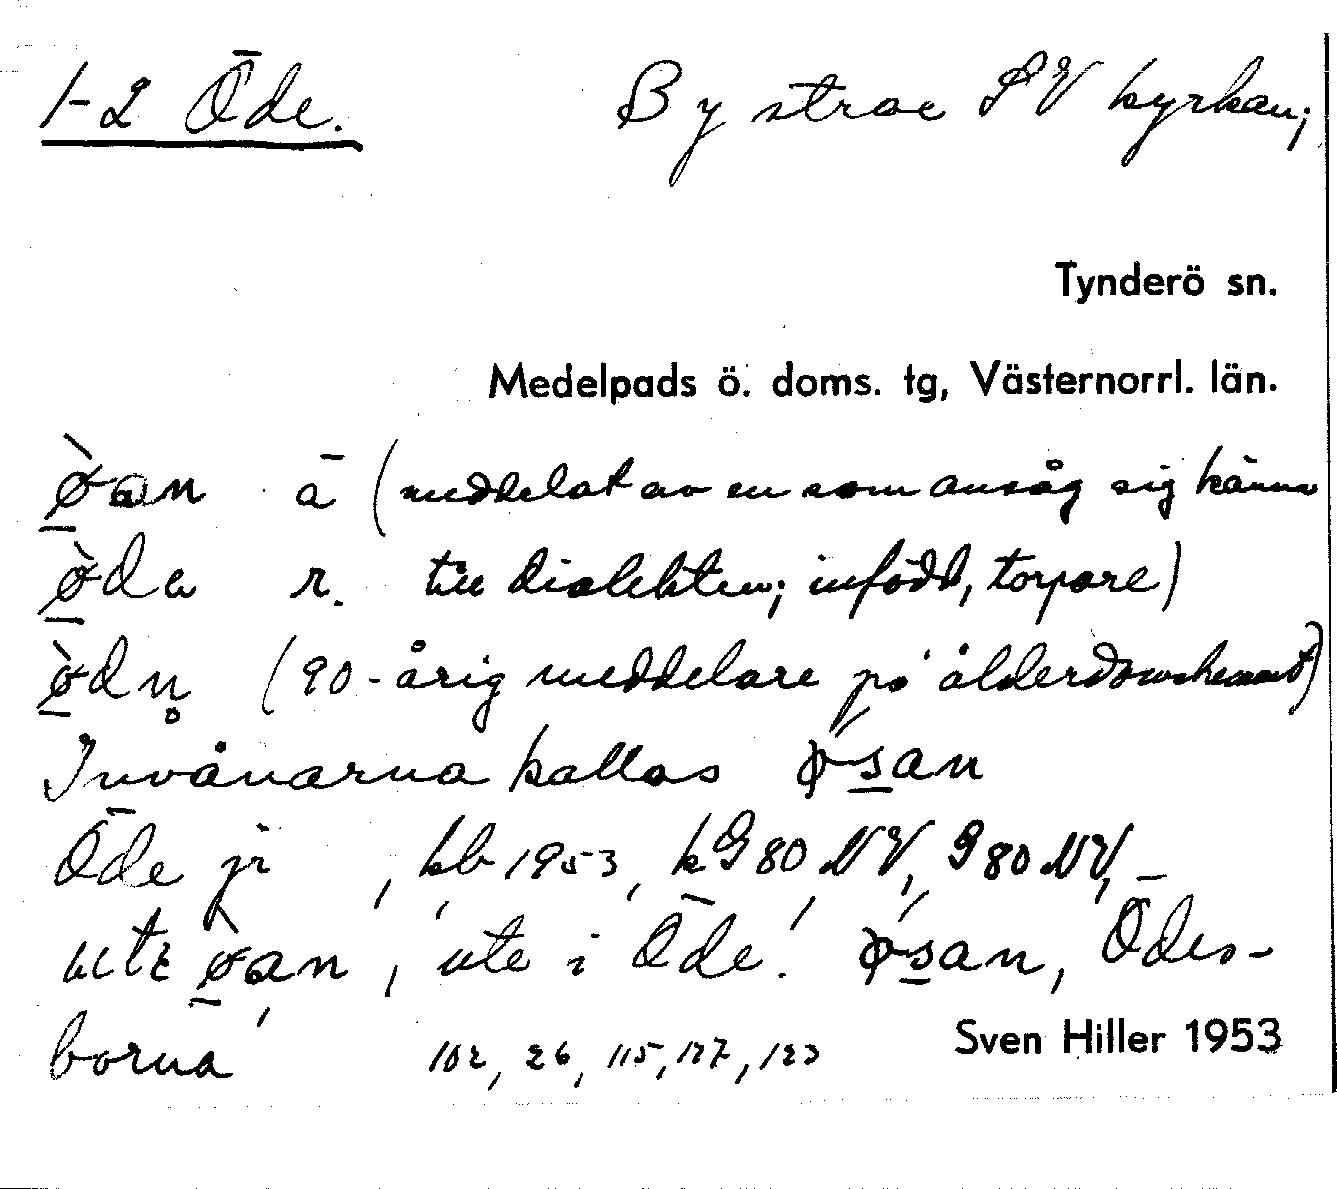 1-2 Öde. By strax SV kyrkan;
Tynderö sn.
Medelpads ö. doms. tg, Västernorrl. län.
ø̀an ā (meddelat av en som ansåg sig känna
ø̀da r. till dialekten; infödd, torpare)
ø̀dn̥ (90-årig meddelare på ålderdomshemmet)
Invånarna kallas ǿsan
Öde jr, kb 1953, k 9 80 NV, 9 80 NV, –
utε ø̀an, 'ute i Öde'. ǿsan, 'Ödes-
borna' 102, 26, 115, 127, 123
Sven Hiller 1953